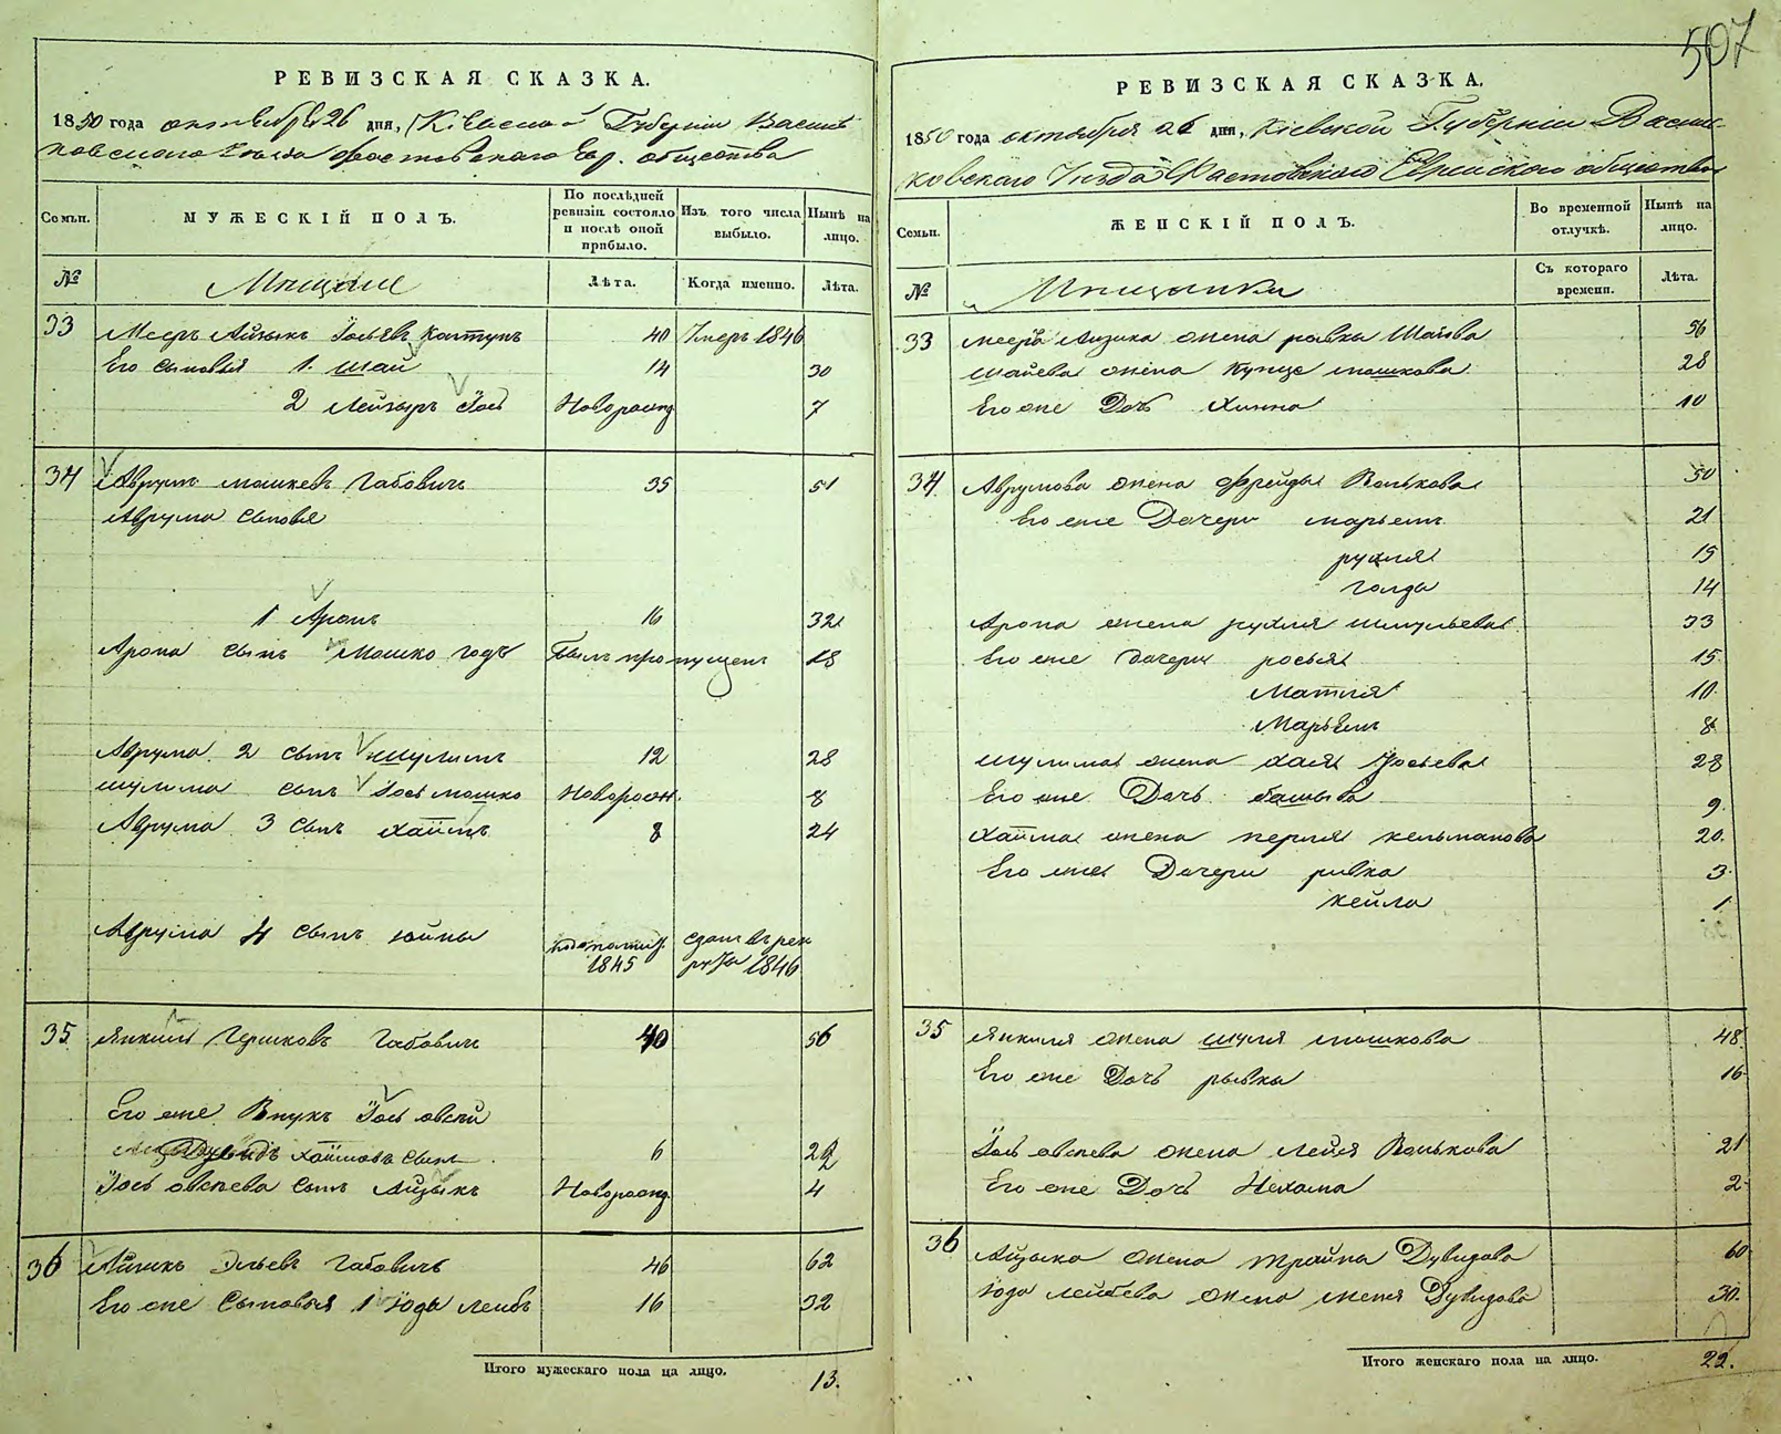 507
РЕВИЗСКАЯ СКАЗКА.
1850 года октября 26 дня, Кіевской Губерніи Василь
ковского Уезда Фастовского Евр. общества
Семьи.
МУЖЕСКІЙ ПОЛЪ.
По послѣдней ревизіи состояло и послѣ оной прибыло.
Изъ того числа выбыло.
Нынѣ на лицо.
№
Мещане
Лѣта.
Когда именно.
Лѣта.
33 Мееръ Айзыкъ Іосьевъ 40 Умеръ 1846
Его сыновья 1. Шая 14 30
2 Лейзыръ Іось Новорожд 7
34 Аврумъ Мошкевъ Габовичъ 35 51
Аврума сыновья
1 Аронъ 16 32
Арона сынъ Мошко Годъ былъ пропущенъ 18
Аврума 2 сынъ Шулимъ 12 28
Шулима сынъ Іось Мошко Новорож. 8
Аврума 3 сынъ Хаимъ 8 24
Аврума 4 сынъ Юйны 1845 сданъ въ рек руты 1846
35 Янкель Гершковъ Габовичъ 40 56
Его же Внукъ Іось Овсѣй
Дувидъ Хаимовъ сынъ 6 22
Іось Овсѣева сынъ Айзыкъ Новорожд. 4
36 Айзыкъ Габовичъ 46 62
Его же Сыновья 1 Юда Лейбъ 16 32
Итого мужескаго пола на лицо. 13.
РЕВИЗСКАЯ СКАЗКА.
1850 года октября 26 дня, Кіевской Губерніи Василь
ковскаго Уѣзда Фастовскаго Еврейскаго общества
Семьи.
ЖЕНСКІЙ ПОЛЪ.
Во временной отлучкѣ.
Нынѣ на лицо.
№
Мещанки
Съ котораго времени.
Лѣта.
33 Меера Айзика жена Ривка Шаева 56
Шаева жена Мошкова 28
Его же Дочь Хинна 10
34 Аврумова жена Фрейда Волькова 50
Его же Дочери Марьемъ 21
Рухля 15
Голда 14
Арона жена Рухля Шмульева 33
Его же дочери Росья 15
Матля 10
Марьемъ 8
Шулима жена Хая Іосьева 28
Его же Дочь Башыва 9
Хаима жена Перля Кельманова 20
Его же Дочери Ривка 3
Кейла 1
35 Янкеля жена Шуля Мошкова 48
Его же Дочь Рывка 16
Іось Овсѣева жена Лея Волькова 21
Его же Дочь Нехама 2
36 Айзыка жена Трайна Дувидова 60
Юда Лейбева жена Меня Дувидова 30
Итого женскаго пола на лицо. 22.